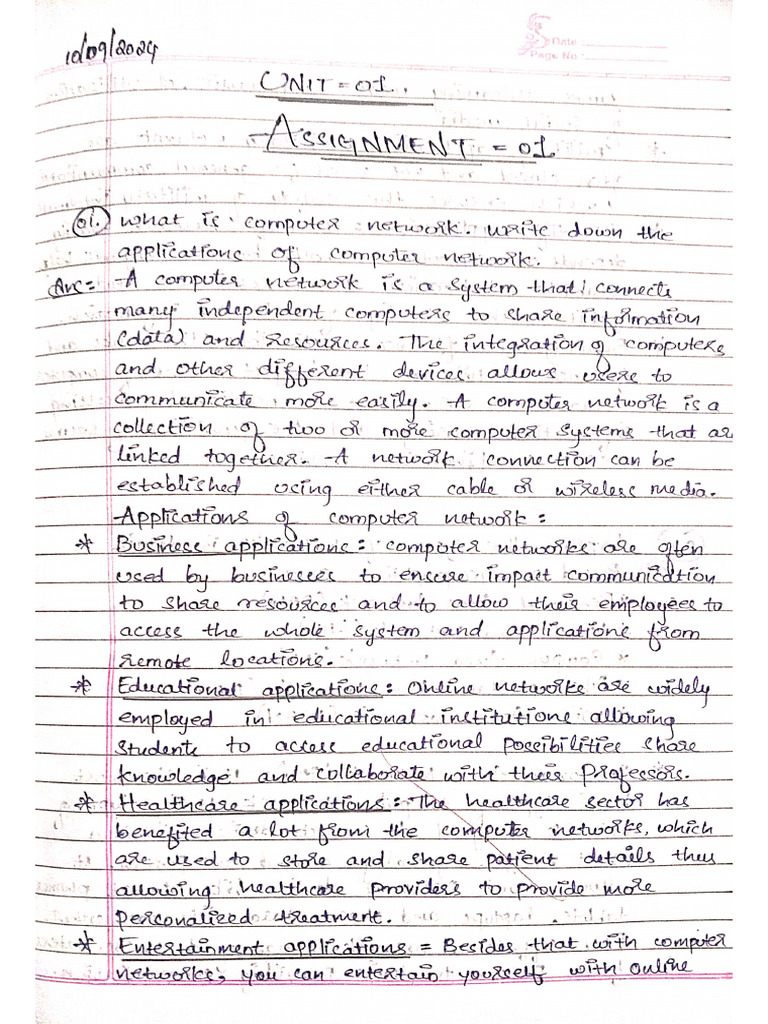 10/09/2024
Date
Page No
UNIT = 01.
ASSIGNMENT = 01
01. What is computer network. write down the
applications of computer network.
Ans= A computer network is a system that connects
many independent computers to share information
(data) and resources. The integration of computers
and other different devices allows users to
communicate more easily. A computer network is a
collection of two or more computer systems that are
linked together. A network connection can be
established using either cable or wireless media.
Applications of computer network:
* Business applications: computer networks are often
used by businesses to ensure impact communication
to share resources and to allow their employees to
access the whole system and applications from
remote locations.
* Educational applications: Online networks are widely
employed in educational institutions allowing
students to access educational possibilities share
knowledge and collaborate with their Professors.
* Healthcare applications: The healthcare sector has
benefited a lot from the computer networks, which
are used to store and share patient details thus
allowing healthcare providers to provide more
personalized treatment.
* Entertainment applications = Besides that with computer
networks, you can entertain yourself with online